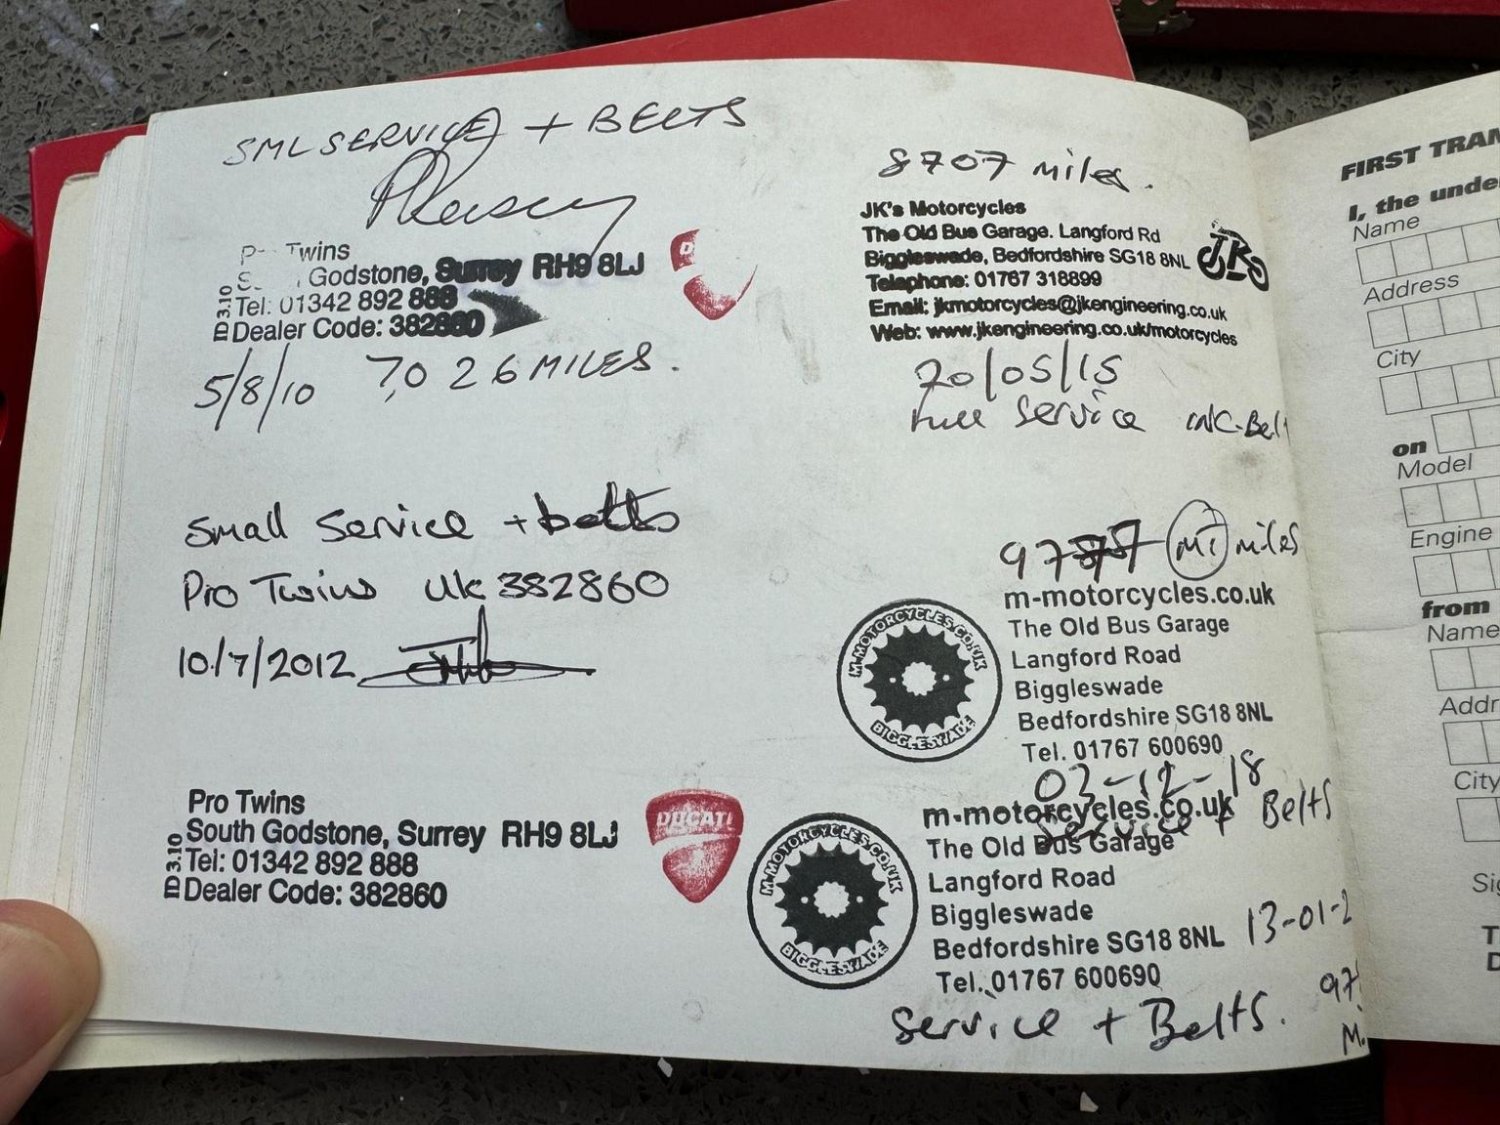 SML SERVICE + BELTS
Twins
Godstone, Surrey RH9 8LJ
Tel: 01342 892 888
Dealer Code: 382860
ID 3.10
DUCATI
5/8/10 7,026 MILES.
small service + belts
Pro Twins UK 382860
10/7/2012
Pro Twins
South Godstone, Surrey RH9 8LJ
Tel: 01342 892 888
Dealer Code: 382860
ID 3.10
DUCATI
8707 miles.
JK's Motorcycles
The Old Bus Garage. Langford Rd
Biggleswade, Bedfordshire SG18 8NL
Telephone: 01767 318899
Email: jkmotorcycles@jkengineering.co.uk
Web: www.jkengineering.co.uk/motorcycles
JK
20/05/15
Full service INC-Belt
miles
m-motorcycles.co.uk
The Old Bus Garage
Langford Road
Biggleswade
Bedfordshire SG18 8NL
Tel. 01767 600690
M-MOTORCYCLES.CO.UK
BIGGLESWADE
03-12-18
Service + Belts
m-motorcycles.co.uk
The Old Bus Garage
Langford Road
Biggleswade
Bedfordshire SG18 8NL
Tel. 01767 600690
M-MOTORCYCLES.CO.UK
BIGGLESWADE
13-01-2
Service + Belts.
97
M.
FIRST TRAN
I, the unde
Name
Address
City
on
Model
Engine
from
Name
Addr
City
Sig
T
D